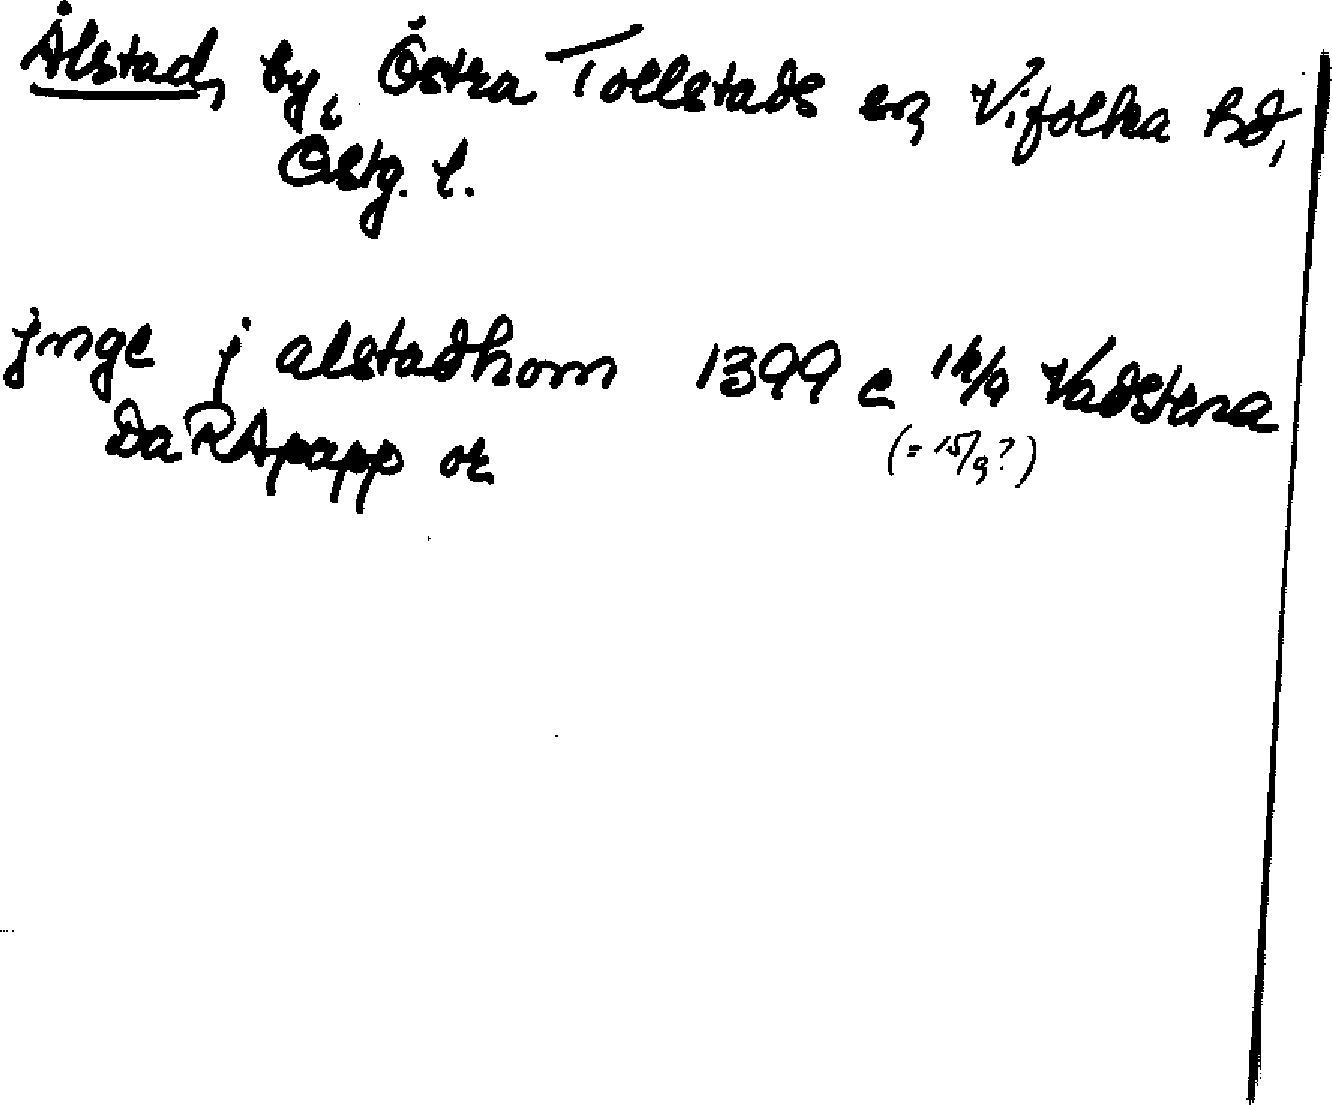 Ålstad, by, Östra Tollstads sn, Vifolka hd,
Östg. l.
jnge j alstadhom 1399 e 14/9 Vadstena
Da RApapp or (= 15/9?)